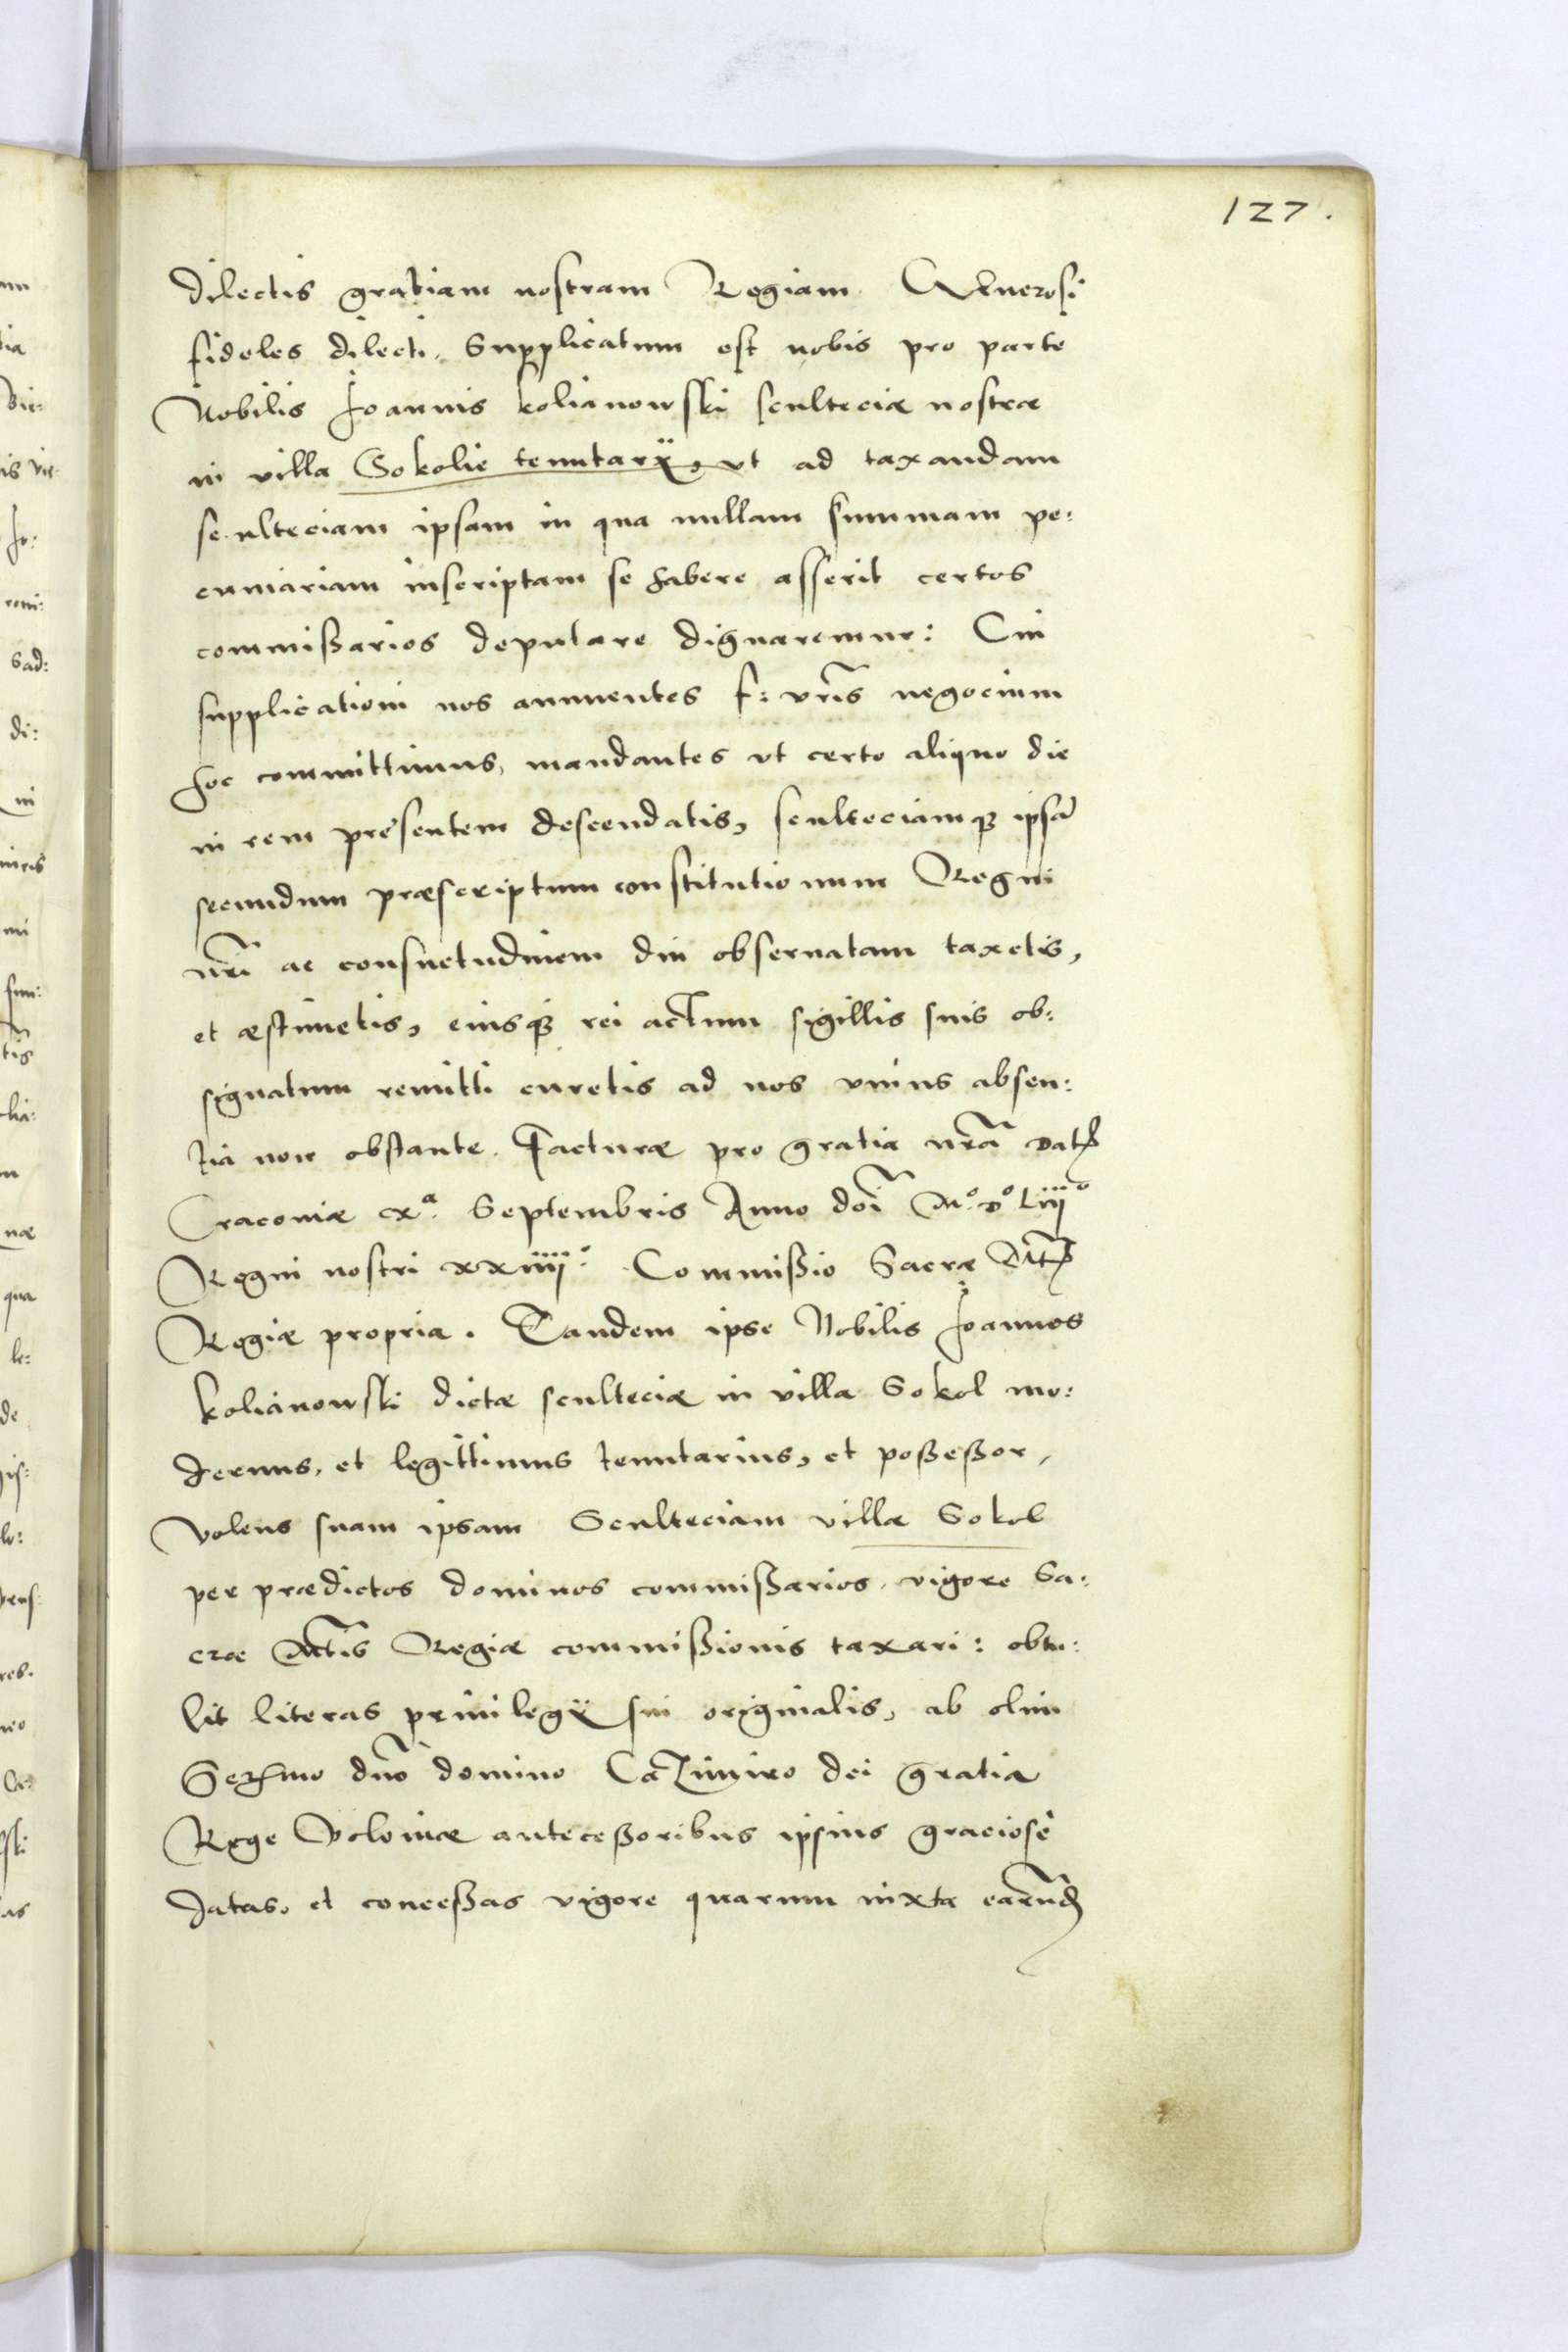 127.
dilectis gratiam nostram Regiam. Generosi
fideles dilecti. Supplicatum est nobis pro parte
Nobilis Joannis Kolianowski sculteciæ nostræ
in villa Sokolie tenutarÿ, vt ad taxandam
sculteciam ipsam in qua nullam summam pe:
cuniariam inscriptam se habere asserit certos
commißarios deputare dignaremur: Cui
supplicationi nos annuentes f: vris negocium
hoc committimus, mandantes vt certo aliquo die
in rem præsentem descendatis, sculteciamq; ipsã
secundum præscriptum constitutionum Regni
nri ac consuetudinem diu obseruatam taxetis,
et æstimetis, eiusq; rei actum sigillis suis ob:
signatum remitti curetis ad nos vnius absen:
tia non obstante. Facturæ pro gratia nrã Dat
Cracoviæ xª. Septembris Anno doi Mº. Dº Liijº
Regni nostri xxiiijº. Commißio Sacræ Mt
Regiæ propria. Tandem ipse Nobilis Joannes
Kolianowski dictæ sculteciæ in villa Sokol mo:
dernus, et legittimus tenutarius, et poßeßor,
volens suam ipsam Sculteciam villæ Sokol
per prædictos dominos commißarios vigore Sa:
cræ Mtis Regiæ commißionis taxari: obtu:
lit literas priuilegÿ sui originalis, ab olim
Sermo dno domino Cazimiro dei gratia
Rege Poloniæ anteceßoribus ipsius graciosè
datas, et conceßas vigore quarum iuxta earund